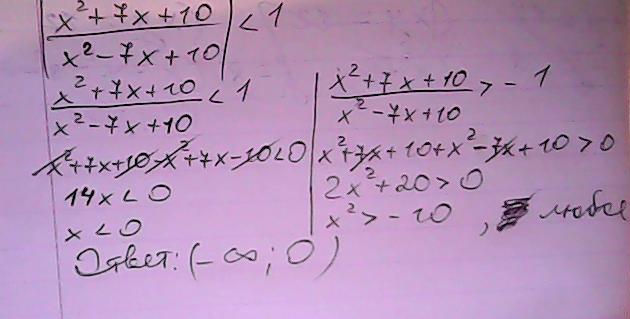 |x²+7x+10 / x²-7x+10| < 1
x²+7x+10 / x²-7x+10 < 1
x²+7x+10-x²+7x-10<0
14x<0
x<0
Ответ: (-∞; 0)
x²+7x+10 / x²-7x+10 > -1
x²+7x+10+x²-7x+10>0
2x²+20>0
x²>-10, любое